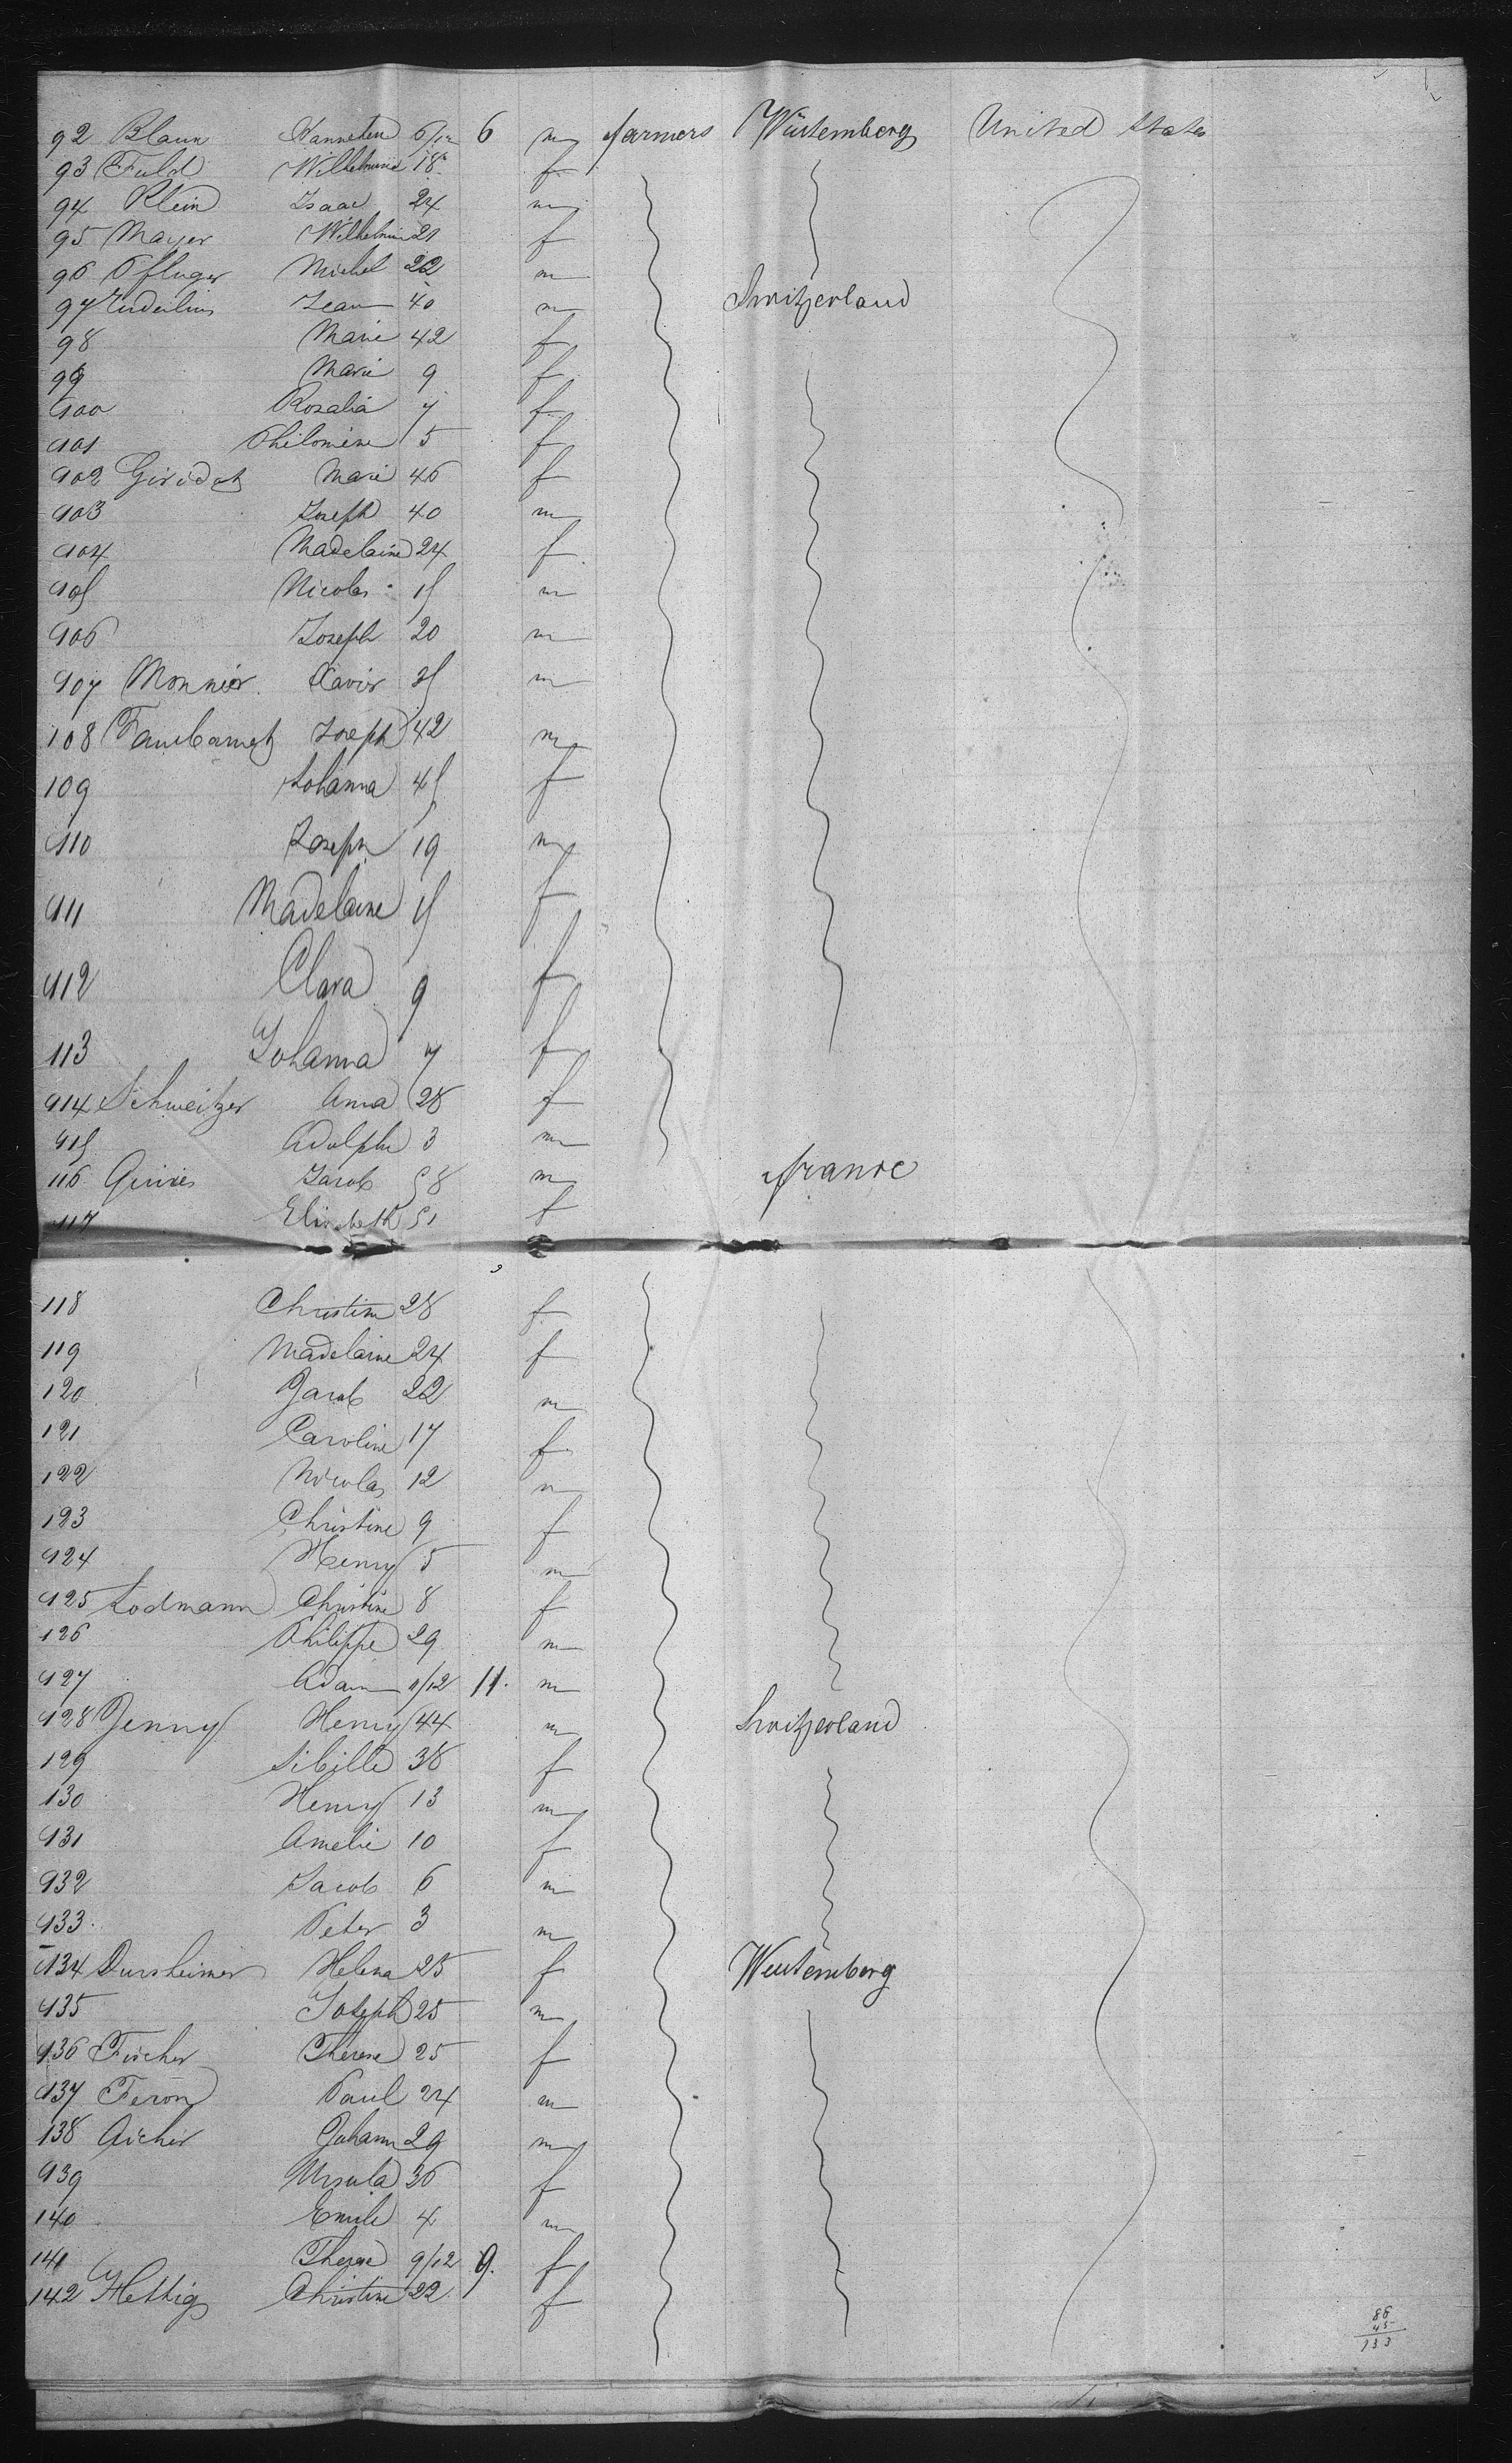 92 Blaun Hannchen 6/12 6 m farmers Würtemberg United States
93 Fuld Wilhelmine 18 f
94 Klein Isaac 24 m
95 Mayer Wilhelmin 21 f
96 Pfluger Michel 22 m
97 Jean 40 m Switzerland
98 Marie 42 f
99 Marie 9 f
100 Rosalia 7 f
101 Philomène 5 f
102 Girodat Marie 46 f
103 Joseph 40 m
104 Madelaine 24 f
105 Nicolas 15 m
106 Joseph 20 m
107 Monnier Xavier 25 m
108 Joseph 42 m
109 Johanna 45 f
110 Joseph 19 m
111 Madelaine 15 f
112 Clara 9 f
113 Johanna 7 f
114 Schweitzer Anna 28 f
115 Adolphe 3 m
116 Jacob 58 m France
117 Elisabeth 51 f
118 Christine 28 f
119 Madelaine 24 f
120 Jacob 22 m
121 Caroline 17 f
122 Nicolas 12 m
123 Christine 9 f
124 Henry 5 m
125 Lodmann Christine 8 f
126 Philippe 29 m
127 Adam 11/12 11. m
128 Jenny Henry 44 m Switzerland
129 Sibille 38 f
130 Henry 13 m
131 Amelie 10 f
132 Jacob 6 m
133. Peter 3 m
134 Dursheimer Helena 25 f Wurtemberg
135 Joseph 25 m
136 Fischer Therese 25 f
137 Feron Paul 24 m
138 Aicher Johann 29 m
139 Ursula 36 f
140 Emile 4 m
141 Therese 9/12 9. f
142 Hettig Christine 22 f
88
45
133